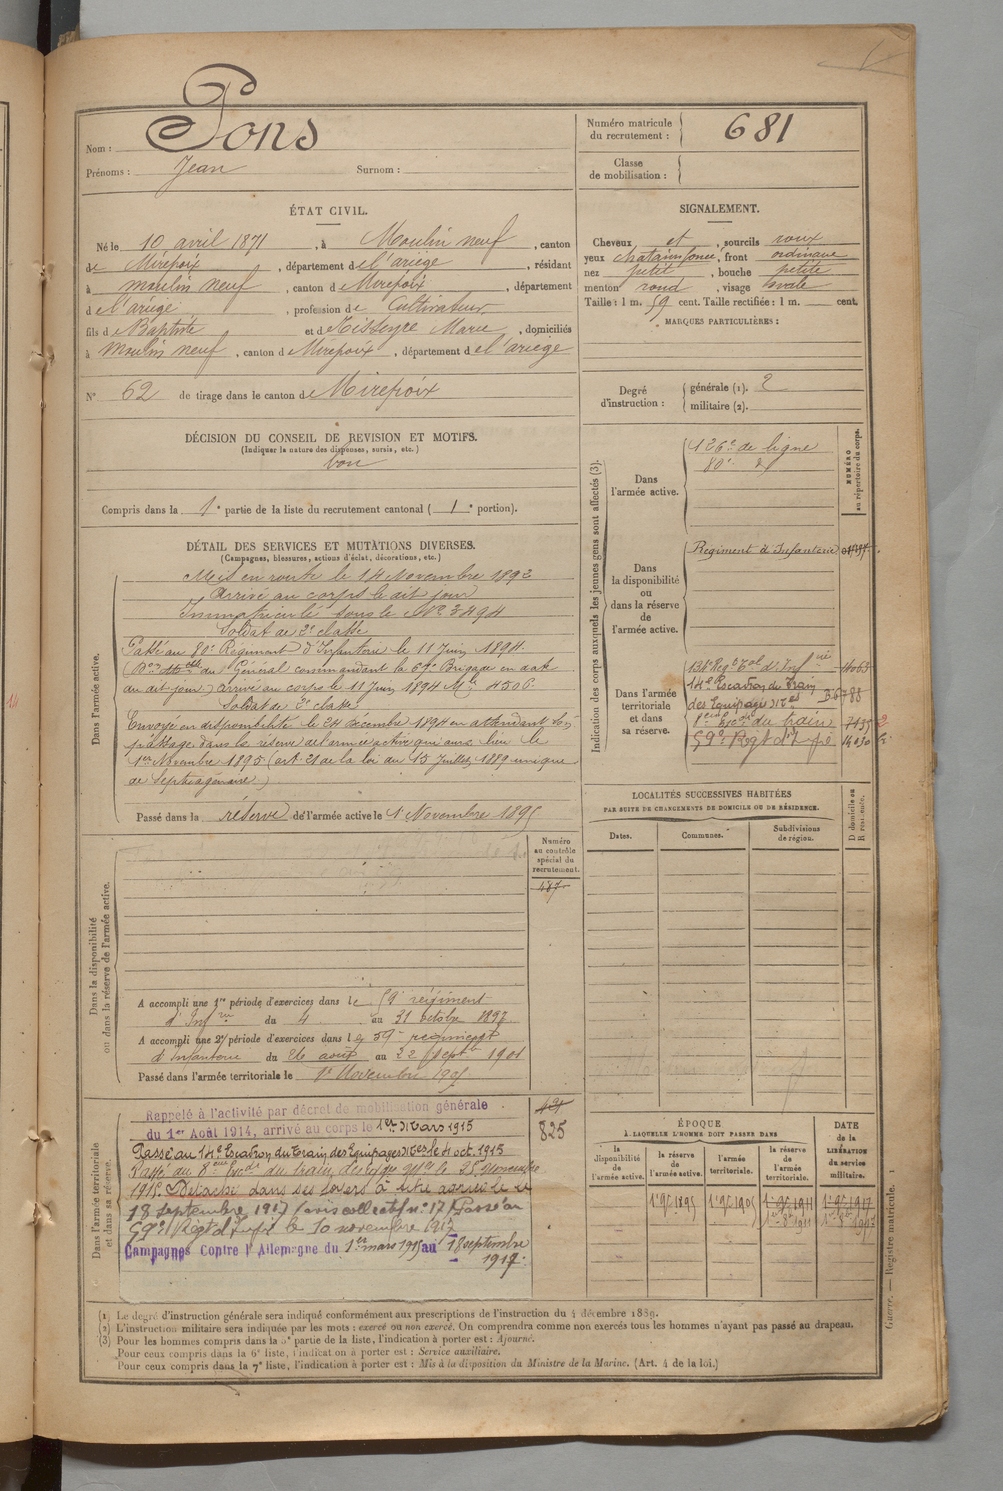 Nom : Pons
Prénoms : Jean Surnom :
Numéro matricule du recrutement : 681
Classe de mobilisation :
ÉTAT CIVIL.
Né le 10 avril 1871, à Moulin neuf, canton
de Mirepoix, département de l'ariège, résidant
à moulin neuf, canton de Mirepoix, département
de l'ariège, profession de Cultivateur
fils de Baptiste et de Tisseyre Marie, domiciliés
à Moulin neuf, canton de Mirepoix, département de l'ariège
N° 62 de tirage dans le canton de Mirepoix
SIGNALEMENT.
Cheveux et, sourcils roux
yeux chatain foncé, front ordinaire
nez petit, bouche petite
menton rond, visage ovale
Taille : 1 m. 59 cent. Taille rectifiée : 1 m. cent.
MARQUES PARTICULIÈRES :
Degré d'instruction : générale (1). 2
militaire (2).
DÉCISION DU CONSEIL DE REVISION ET MOTIFS.
(Indiquer la nature des dispenses, sursis, etc.)
bon
Compris dans la 1e partie de la liste du recrutement cantonal ( 1e portion).
DÉTAIL DES SERVICES ET MUTATIONS DIVERSES.
(Campagnes, blessures, actions d'éclat, décorations, etc.)
Dans l'armée active.
Mis en route le 14 Novembre 1892
Arrivé au corps le dit jour
Immatriculé sous le N° 3494
Soldat de 2e classe
Passé au 80e Régiment d'Infanterie le 11 Juin 1894.
Général commandant la 67e Brigade en date
du dit jour) arrivé au corps le 11 Juin 1894 Mle 4506.
Soldat de 2e classe
Envoyé en disponibilité le 24 décembre 1894 en attendant son
passage dans la réserve de l'armée active qui aura lieu le
1er Novembre 1895 (art. 21 de la loi du 15 Juillet 1889 unique
de Septuagénaire)
Passé dans la réserve de l'armée active le 1er Novembre 1895
Indication des corps auxquels les jeunes gens sont affectés (3).
NUMÉRO au répertoire du corps.
Dans l'armée active.
126e de ligne
80e d°
Dans la disponibilité ou dans la réserve de l'armée active.
Régiment d'Infanterie
Dans l'armée territoriale et dans sa réserve.
Regt Tal d'Infrie 14063
14e Escadron du Train
des Equipages Mres
du train 7135
59e Régt d'Infie 14030
LOCALITÉS SUCCESSIVES HABITÉES
PAR SUITE DE CHANGEMENTS DE DOMICILE OU DE RÉSIDENCE.
Dates. Communes. Subdivisions de région. D domicile ou R résidence.
Dans la disponibilité ou dans la réserve de l'armée active.
Numéro au contrôle spécial du recrutement.
487
A accompli une 1re période d'exercices dans le 59e régiment
d'Infrie du 4 au 31 octobre 1897
A accompli une 2e période d'exercices dans le 59e régiment
d'Infanterie du 26 août au 22 Septbre 1901
Passé dans l'armée territoriale le 1er Novembre 1905
Dans l'armée territoriale et dans sa réserve.
Rappelé à l'activité par décret de mobilisation générale
du 1er Août 1914, arrivé au corps le 1er Mars 1915
825
Passé au 14e Escadron du Train des Equipages Mres le 4 oct. 1915
Passé au 8eme du train des Mres le 25 Novembre
1915. Détaché dans ses foyers à titre agricole le
18 septembre 1917 (avis collectif n° 17) Passé au
59e Régt d'Infie le 10 novembre 1917
Campagnes Contre l'Allemagne du 1er mars 1915 au 18 septembre
1917.
ÉPOQUE
À LAQUELLE L'HOMME DOIT PASSER DANS
la disponibilité de l'armée active.
la réserve de l'armée active.
l'armée territoriale.
la réserve de l'armée territoriale.
DATE de la LIBÉRATION du service militaire.
1er 9bre 1895 1er 9bre 1905 1er 9bre 1911 1er 9bre 1917
(1) Le degré d'instruction générale sera indiqué conformément aux prescriptions de l'instruction du 4 décembre 1889.
(2) L'instruction militaire sera indiquée par les mots : exercé ou non exercé. On comprendra comme non exercés tous les hommes n'ayant pas passé au drapeau.
(3) Pour les hommes compris dans la 5e partie de la liste, l'indication à porter est : Ajourné.
Pour ceux compris dans la 6e liste, l'indication à porter est : Service auxiliaire.
Pour ceux compris dans la 7e liste, l'indication à porter est : Mis à la disposition du Ministre de la Marine. (Art. 4 de la loi.)
Guerre. — Registre matricule. 1